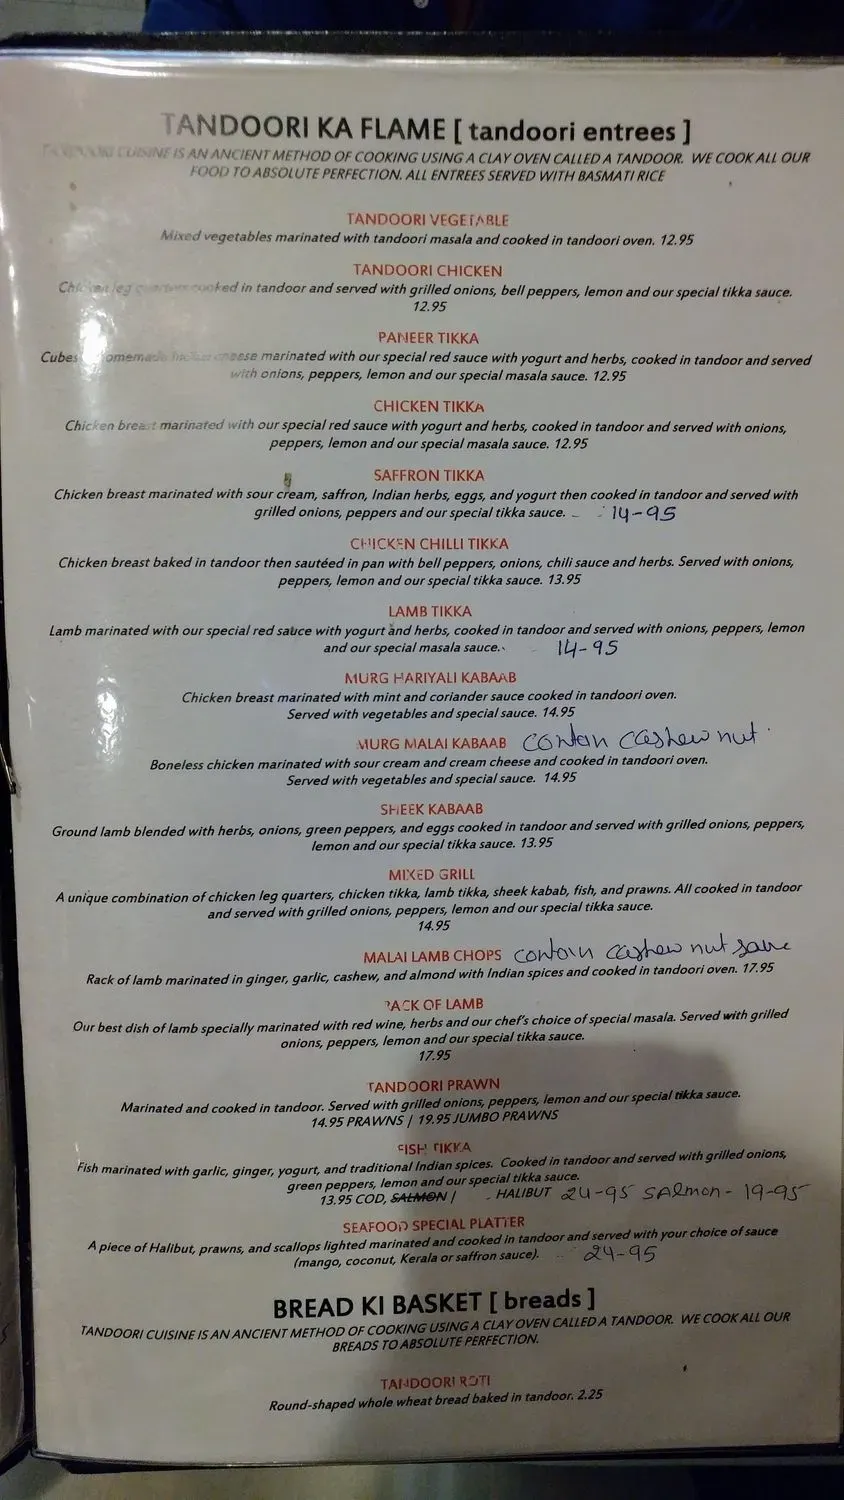 TANDOORI KA FLAME [ tandoori entrees ]
CUISINE IS AN ANCIENT METHOD OF COOKING USING A CLAY OVEN CALLED A TANDOOR. WE COOK ALL OUR
FOOD TO ABSOLUTE PERFECTION. ALL ENTREES SERVED WITH BASMATI RICE
TANDOORI VEGETABLE
Mixed vegetables marinated with tandoori masala and cooked in tandoori oven. 12.95
TANDOORI CHICKEN
Chicken leg quarters cooked in tandoor and served with grilled onions, bell peppers, lemon and our special tikka sauce.
12.95
PANEER TIKKA
Cubes homemade Indian cheese marinated with our special red sauce with yogurt and herbs, cooked in tandoor and served
with onions, peppers, lemon and our special masala sauce. 12.95
CHICKEN TIKKA
Chicken breast marinated with our special red sauce with yogurt and herbs, cooked in tandoor and served with onions,
peppers, lemon and our special masala sauce. 12.95
SAFFRON TIKKA
Chicken breast marinated with sour cream, saffron, Indian herbs, eggs, and yogurt then cooked in tandoor and served with
grilled onions, peppers and our special tikka sauce. 14-95
CHICKEN CHILLI TIKKA
Chicken breast baked in tandoor then sautéed in pan with bell peppers, onions, chili sauce and herbs. Served with onions,
peppers, lemon and our special tikka sauce. 13.95
LAMB TIKKA
Lamb marinated with our special red sauce with yogurt and herbs, cooked in tandoor and served with onions, peppers, lemon
and our special masala sauce. 14-95
MURG HARIYALI KABAAB
Chicken breast marinated with mint and coriander sauce cooked in tandoori oven.
Served with vegetables and special sauce. 14.95
MURG MALAI KABAAB contain cashew nut
Boneless chicken marinated with sour cream and cream cheese and cooked in tandoori oven.
Served with vegetables and special sauce. 14.95
SHEEK KABAAB
Ground lamb blended with herbs, onions, green peppers, and eggs cooked in tandoor and served with grilled onions, peppers,
lemon and our special tikka sauce. 13.95
MIXED GRILL
A unique combination of chicken leg quarters, chicken tikka, lamb tikka, sheek kabab, fish, and prawns. All cooked in tandoor
and served with grilled onions, peppers, lemon and our special tikka sauce.
14.95
MALAI LAMB CHOPS contain cashew nut sauce
Rack of lamb marinated in ginger, garlic, cashew, and almond with Indian spices and cooked in tandoori oven. 17.95
RACK OF LAMB
Our best dish of lamb specially marinated with red wine, herbs and our chef's choice of special masala. Served with grilled
onions, peppers, lemon and our special tikka sauce.
17.95
TANDOORI PRAWN
Marinated and cooked in tandoor. Served with grilled onions, peppers, lemon and our special tikka sauce.
14.95 PRAWNS / 19.95 JUMBO PRAWNS
FISH TIKKA
Fish marinated with garlic, ginger, yogurt, and traditional Indian spices. Cooked in tandoor and served with grilled onions,
green peppers, lemon and our special tikka sauce.
13.95 COD, SALMON / HALIBUT 24-95 SALmon - 19-95
SEAFOOD SPECIAL PLATTER
A piece of Halibut, prawns, and scallops lighted marinated and cooked in tandoor and served with your choice of sauce
(mango, coconut, Kerala or saffron sauce). 24-95
BREAD KI BASKET [ breads ]
TANDOORI CUISINE IS AN ANCIENT METHOD OF COOKING USING A CLAY OVEN CALLED A TANDOOR. WE COOK ALL OUR
BREADS TO ABSOLUTE PERFECTION.
TANDOORI ROTI
Round-shaped whole wheat bread baked in tandoor. 2.25